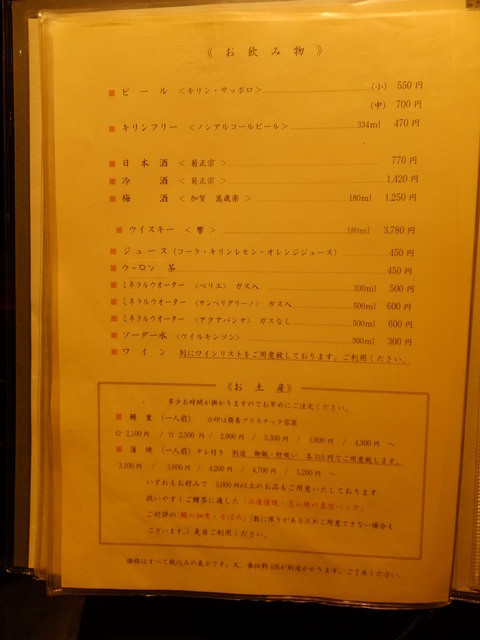 《 お 飲 み 物 》
■ ビ ー ル <キリン・サッポロ> (小) 550 円
(中) 700 円
■ キリンフリー <ノンアルコールビール> 334ml 470 円
■ 日 本 酒 < 菊正宗 > 770 円
■ 冷 酒 < 菊正宗 > 1,420 円
■ 梅 酒 < 加賀 萬歳楽 > 180ml 1,250 円
■ ウイスキー < 響 > 180ml 3,780 円
■ ジュース (コーラ・キリンレモン・オレンジジュース) 450 円
■ ウーロン 茶 450 円
■ ミネラルウオーター (ペリエ) ガス入 330ml 500 円
■ ミネラルウオーター (サンペリグリーノ) ガス入 500ml 600 円
■ ミネラルウオーター (アクアパンナ) ガスなし 500ml 600 円
■ ソーダー水 (ウイルキンソン) 300ml 300 円
■ ワ イ ン 別にワインリストをご用意致しております。ご利用ください。
《お 土 産》
多少お時間が掛かりますのでお早めにご注文ください。
■ 鰻 重 (一人前) ☆印は簡易プラスチック容器
☆ 2,100円 / ☆ 2,500 円 / 2,800 円 / 3,300 円 / 3,800 円 / 4,300 円 ~
■ 蒲 焼 (一人前) タレ付き 別途 御飯・肝吸い 各310円でご用意致します。
3,100円 / 3,600円 / 4,200 円 / 4,700 円 / 5,200 円 ~
いずれもお好みで 5,000円以上のお品もご用意いたしております
扱いやすくご贈答に適した「冷凍蒲焼・志ら焼の真空パック」
ご好評の「鰻の佃煮・そぼろ」(数に限りがあるためご用意できない場合も
ございます。) 是非ご利用ください。
価格はすべて税込みの表示です。又、奉仕料10%が別途かかります。ご了承ください。